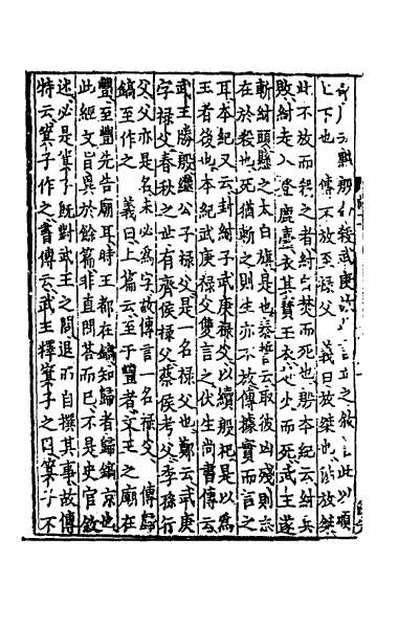 上下也 傳不放至祿父 義曰放桀也
此不放而殺之者紂自焚而死也殷本紀云紂兵
敗紂走入登鹿臺衣其寶玉衣赴火而死武王遂
斬紂頭懸之太白旗是也泰誓云取彼凶殘則志
在於殺也死猶斬之則生亦不放傳據實而言之
耳本紀又云封紂子武庚祿父以續殷祀是以為
王者後也本紀武庚祿父雙言之伏生尚書傳云
武王勝殷繼公子祿父是一名祿父也鄭云武庚
字祿父春秋之世有齊侯祿父蔡侯考父季孫行
父父亦是名未必為字故傳言一名祿父 傳歸
鎬至作之 義曰上篇云至于豐者文王之廟在
豐至豐先告廟耳時王都在鎬知歸者歸鎬京也
此經文旨異於餘篇非直問荅而已不是史官敘
述必是箕子既對武王之問退而自撰其事故傳
特云箕子作之書傳云武王釋箕子之囚箕子不